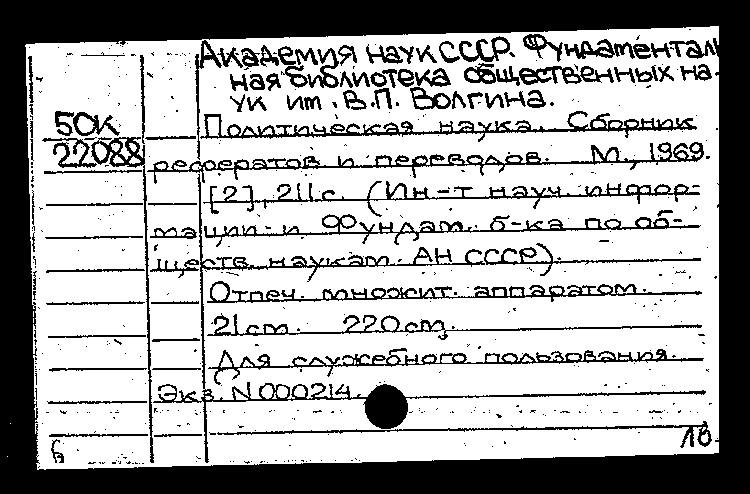 Академия наук СССР. Фундаменталь
ная библиотека общественных на-
ук им. В.П. Волгина.
50К
22088
Политическая наука. Сборник
рефератов и переводов. М., 1969.
[2], 211 с. (Ин-т науч. инфор-
мации и Фундам. б-ка по об-
ществ. наукам АН СССР).
Отпеч. множит. аппаратом.
21 см. 220 см.
Для служебного пользования.
Экз. N 000214.
18.